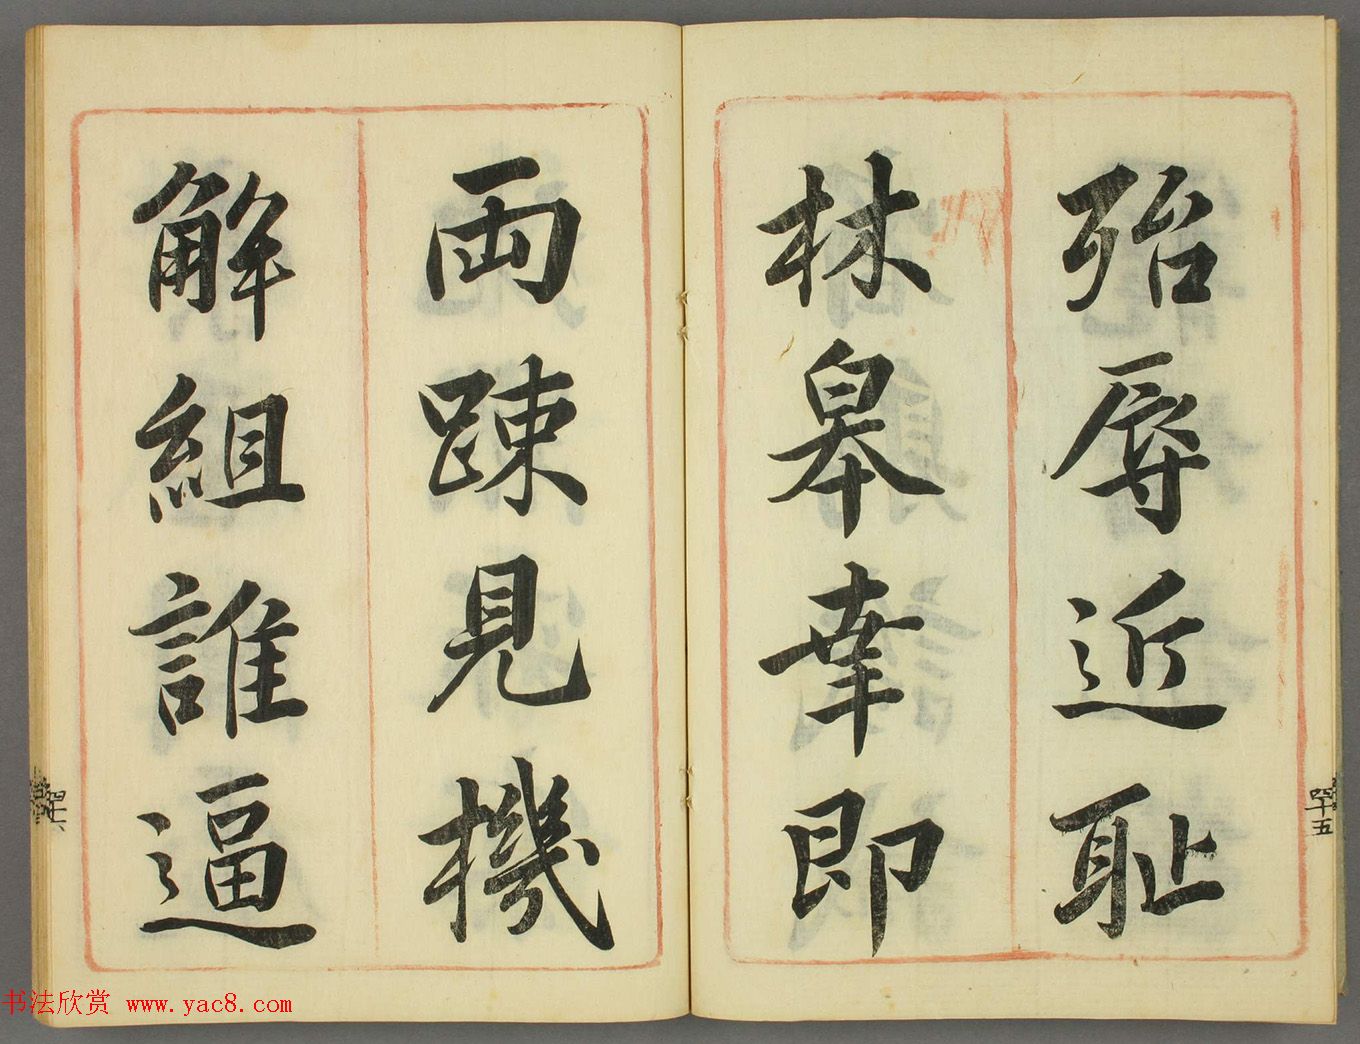 殆辱近耻
林皋幸即
两疎見機
解組誰逼
四十五
四十六
书法欣赏 www.yac8.com